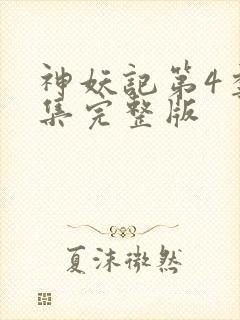 神妖記第4
集完整版
夏沫微然